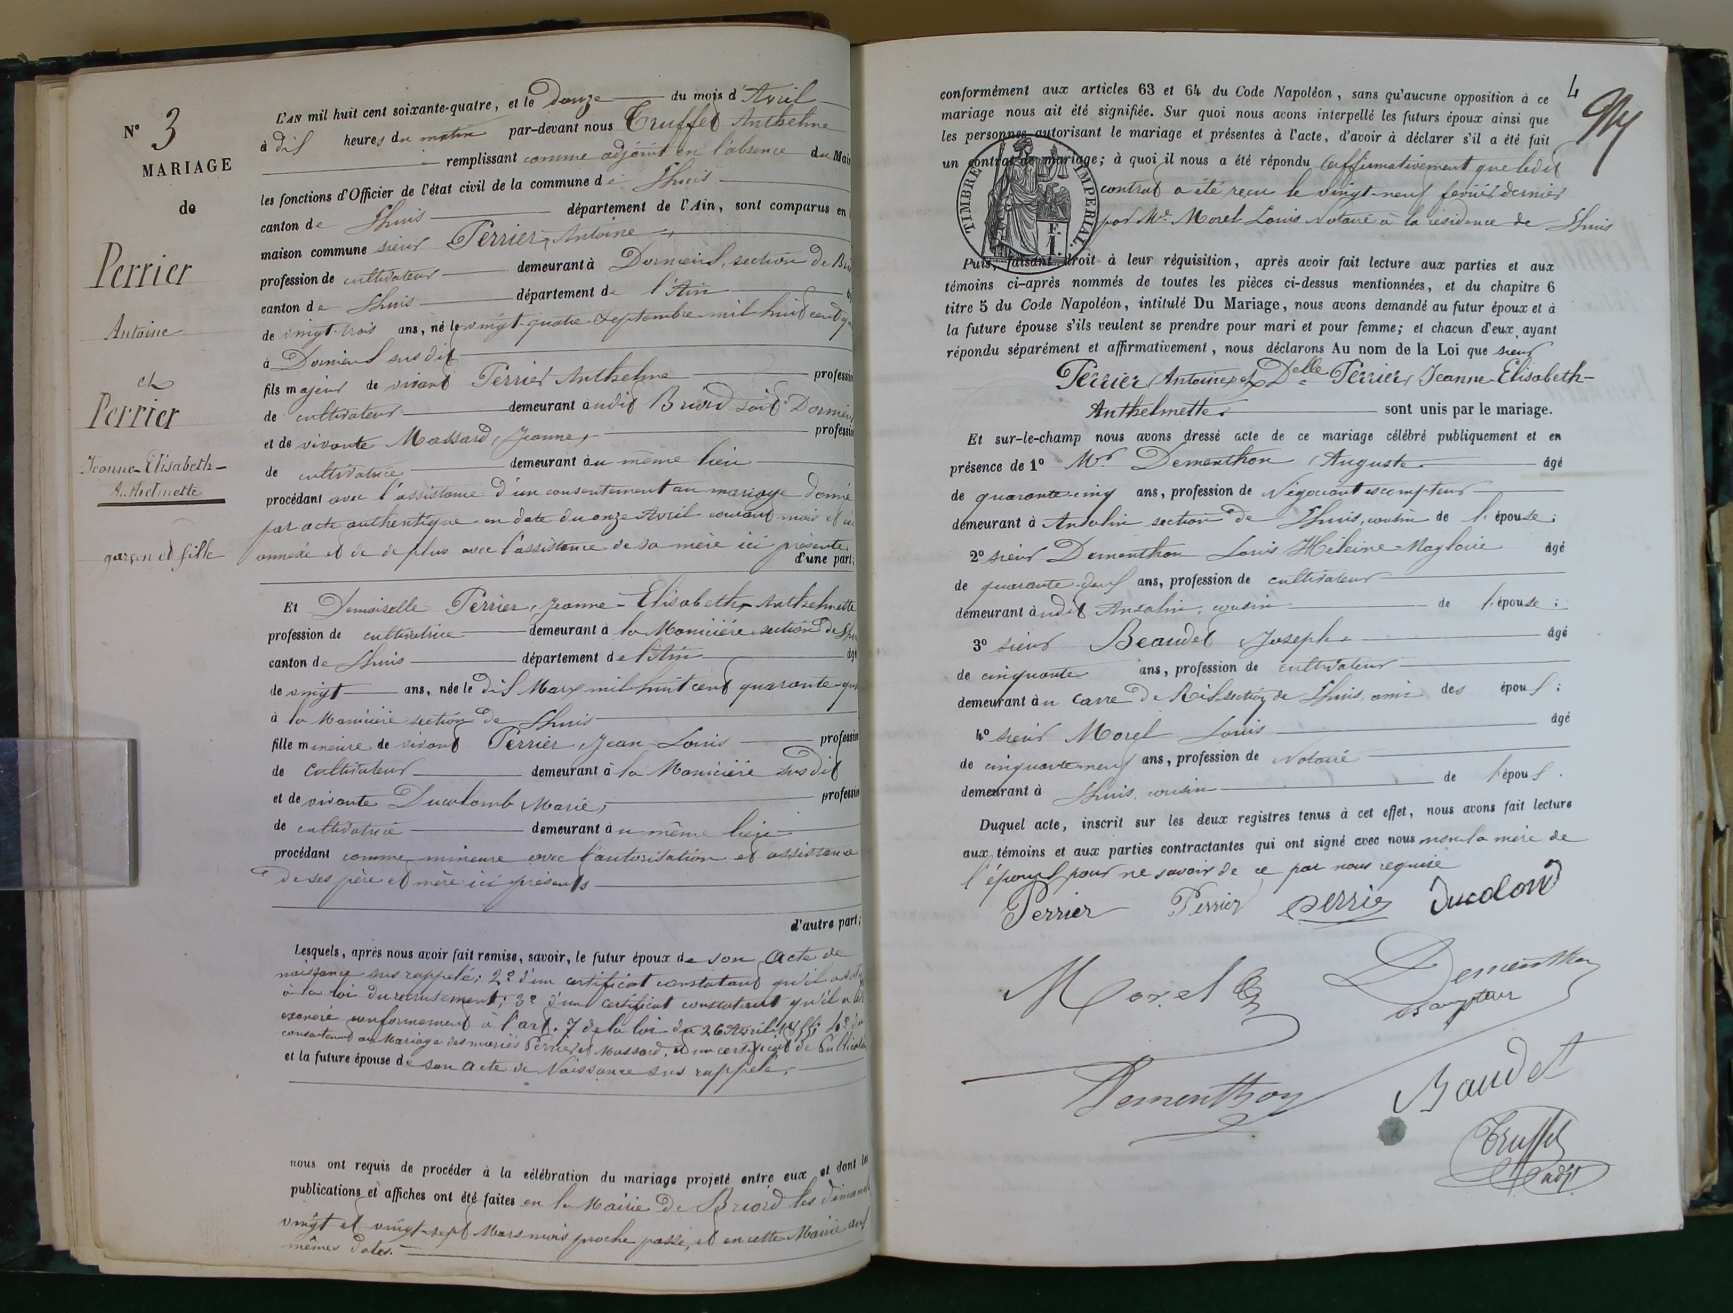 N° 3
MARIAGE
de
Perrier
Antoine
et
Perrier
Jeanne-Elisabeth-
Anthelmette
garçon et fille
L'AN mil huit cent soixante-quatre, et le Douze du mois d'Avril
à dix heures du matin par-devant nous Truffet Anthelme
remplissant comme adjoint en l'absence du Mair
les fonctions d'Officier de l'état civil de la commune de Lhuis
canton de Lhuis département de l'Ain, sont comparus en
maison commune sieur Perrier, Antoine,
profession de cultivateur demeurant à Dornieux, section de Bri
canton de Lhuis département de l'Ain
de vingt-trois ans, né le vingt-quatre Septembre mil huit cent
à Dornieux susdit
fils majeur de vivant Perrier Anthelme profession
de cultivateur demeurant audit Briord soit Dornieux
et de vivante Massard, Jeanne, profession
de cultivatrice demeurant au même lieu
procédant avec l'assistance d'un consentement au mariage donné
par acte authentique en date du onze Avril courant mois et ici
annexé et de plus avec l'assistance de sa mère ici présente
d'une part;
Et Demoiselle Perrier, Jeanne-Elisabeth-Anthelmette
profession de cultivatrice demeurant à la Manicière section de Lhuis
canton de Lhuis département de l'Ain âgé
de vingt ans, née le dix Mars mil huit cent quarante-qua
à la Manicière section de Lhuis
fille mineure de vivant Perrier, Jean-Louis profession
de cultivateur demeurant à la Manicière susdit
et de vivante Ducolomb Marie, profession
de cultivatrice demeurant au même lieu
procédant comme mineure avec l'autorisation et assistance
de ses père et mère ici présents
d'autre part;
Lesquels, après nous avoir fait remise, savoir, le futur époux de son acte de
naissance sus rappelé; 2° d'un certificat constatant qu'il a satisf
à la loi du recrutement; 3° d'un certificat constatant qu'il a été
exonéré conformément à l'art. 7 de la loi du 26 Avril 1855; 4° du
consentement au Mariage des mariés Perrier et Massard, et un certificat de Publication
et la future épouse de son acte de Naissance sus rappelé,
nous ont requis de procéder à la célébration du mariage projeté entre eux et dont les
publications et affiches ont été faites en la Mairie de Briord les dimanches
vingt et vingt-sept Mars mois proche passé, et en cette Mairie aux
mêmes dates.
4
conformément aux articles 63 et 64 du Code Napoléon, sans qu'aucune opposition à ce
mariage nous ait été signifiée. Sur quoi nous avons interpellé les futurs époux ainsi que
les personnes autorisant le mariage et présentes à l'acte, d'avoir à déclarer s'il a été fait
un contrat de mariage; à quoi il nous a été répondu affirmativement que ledit
contrat a été reçu le vingt-neuf fevrier dernier
par Me Morel Louis Notaire à la résidence de Lhuis
TIMBRE IMPERIAL
F
1.
Puis, faisant droit à leur réquisition, après avoir fait lecture aux parties et aux
témoins ci-après nommés de toutes les pièces ci-dessus mentionnées, et du chapitre 6
titre 5 du Code Napoléon, intitulé Du Mariage, nous avons demandé au futur époux et à
la future épouse s'ils veulent se prendre pour mari et pour femme; et chacun d'eux ayant
répondu séparément et affirmativement, nous déclarons Au nom de la Loi que sieur
Perrier, Antoine, et Delle Perrier, Jeanne-Elisabeth-
Anthelmette, sont unis par le mariage.
Et sur-le-champ nous avons dressé acte de ce mariage célébré publiquement et en
présence de 1° Mr Dementhon, Auguste âgé
de quarante-cinq ans, profession de Négociant escompteur
demeurant à Ansolin section de Lhuis, cousin de l'épouse;
2° sieur Dementhon Louis Hileine-Magloire âgé
de quarante-deux ans, profession de cultivateur
demeurant audit Ansolin, cousin de l'épouse;
3° sieur Beaudet Joseph âgé
de cinquante ans, profession de cultivateur
demeurant au Carre de Rix section de Lhuis, ami des époux;
4° sieur Morel Louis âgé
de cinquante-neuf ans, profession de Notaire
demeurant à Lhuis, cousin de l'époux.
Duquel acte, inscrit sur les deux registres tenus à cet effet, nous avons fait lecture
aux témoins et aux parties contractantes qui ont signé avec nous non la mère de
l'époux pour ne savoir de ce par nous requise
Perrier Perrier Perrier Ducolomb
Morel Dementhon
escompteur
Dementhon Baudet
Truffet
adj.